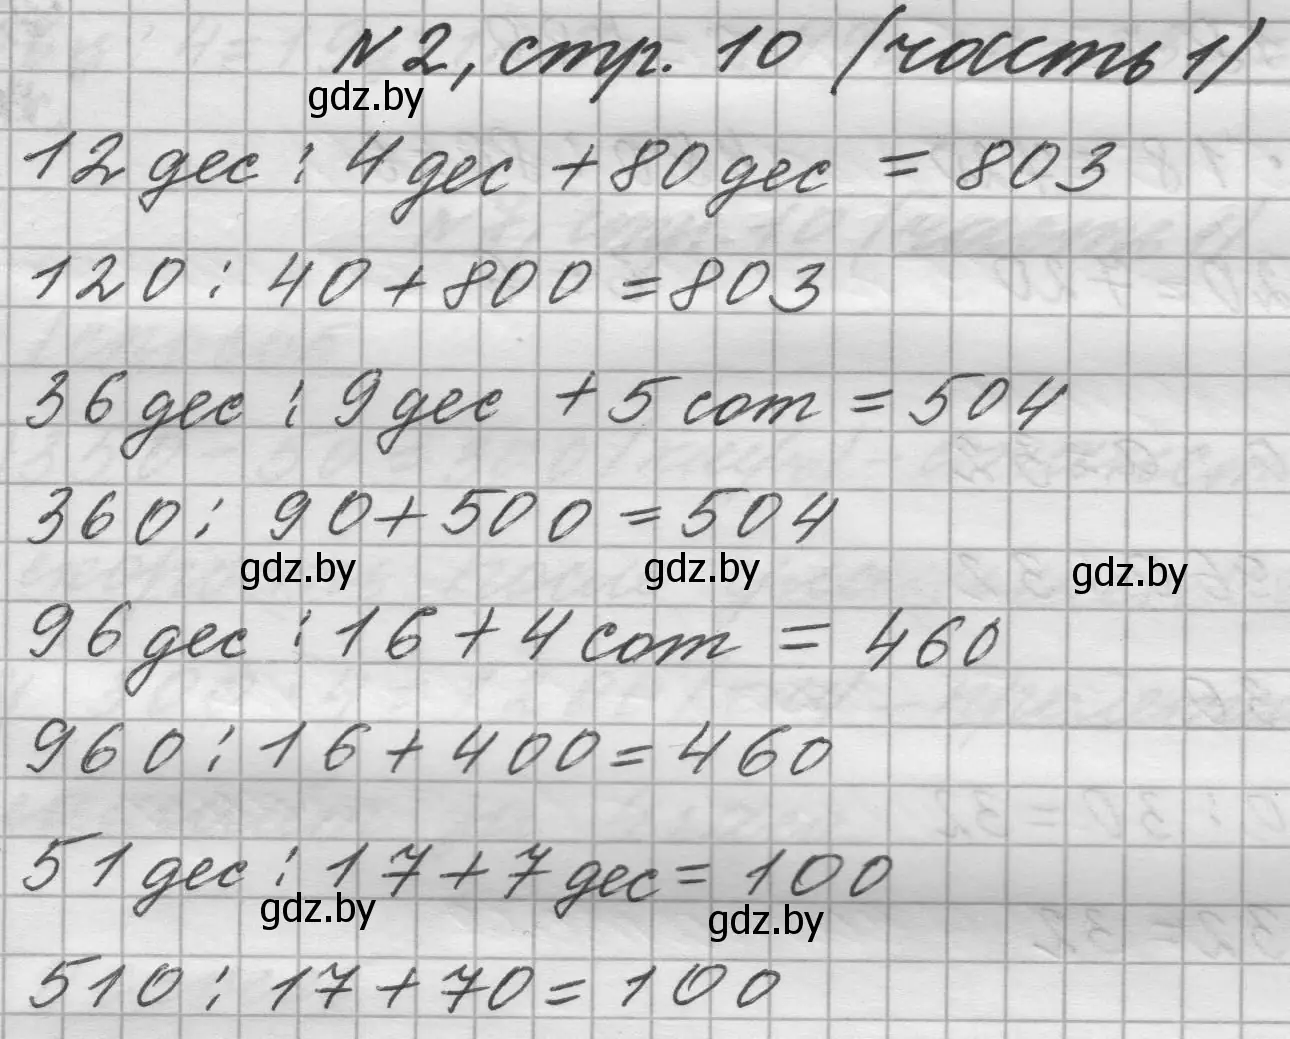 №2, стр. 10 (часть 1)
gdz.by
12 дес : 4 дес + 80 дес = 803
120 : 40 + 800 = 803
36 дес : 9 дес + 5 сот = 504
360 : 90 + 500 = 504
gdz.by gdz.by gdz.by
96 дес : 16 + 4 сот = 460
960 : 16 + 400 = 460
51 дес : 17 + 7 дес = 100
gdz.by gdz.by
510 : 17 + 70 = 100